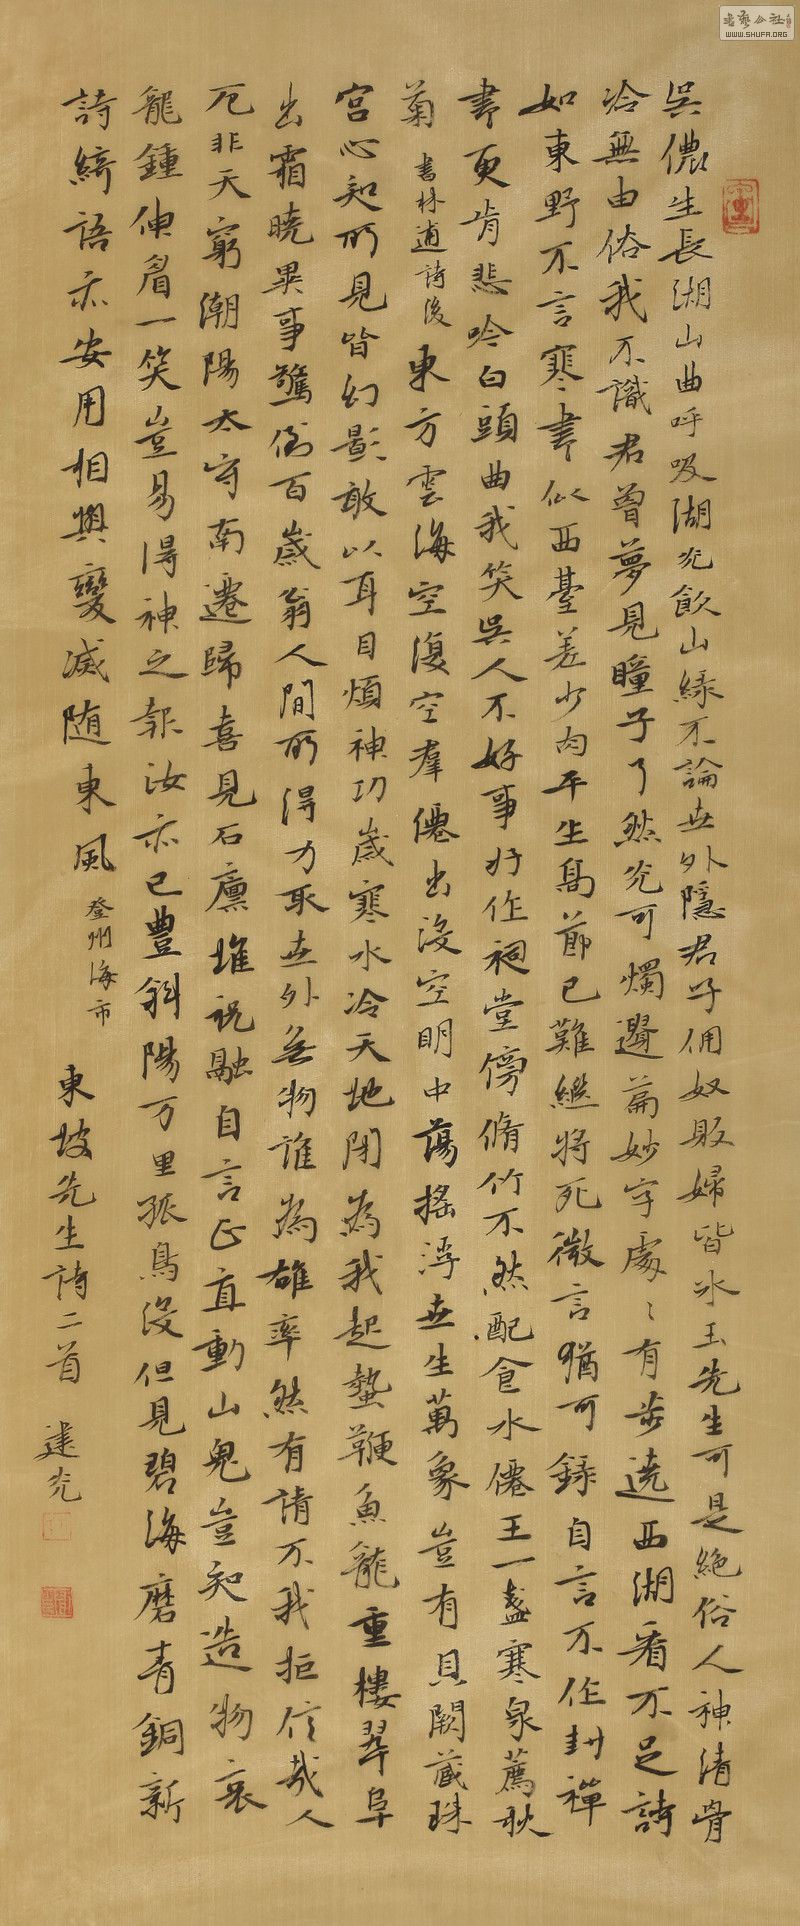 吳儂生長湖山曲呼吸湖光飲山緑不論世外隱君子傭奴販婦皆冰玉先生可是絕俗人神清骨
冷無由俗我不識君曾夢見瞳子了然光可燭遺篇妙字處〻有步遶西湖看不足詩
如東野不言寒書似西臺差少肉平生高節已難繼將死微言猶可錄自言不作封禪
書更肯悲吟白頭曲我笑吳人不好事好作祠堂傍脩竹不然配食水僊王一盞寒泉薦秋
菊 書林逋詩後 東方雲海空復空羣僊出沒空明中蕩搖浮世生萬象豈有貝闕藏珠
宮心知所見皆幻影敢以耳目煩神功歲寒水冷天地閉為我起蟄鞭魚龍重樓翠阜
出霜曉異事驚倒百歲翁人間所得力取世外無物誰為雄率然有請不我拒信我人
厄非天窮潮陽太守南遷歸喜見石廩堆祝融自言正直動山鬼豈知造物哀
龍鍾伸眉一笑豈易得神之報汝亦已豐斜陽万里孤鳥沒但見碧海磨青銅新
詩綺語亦安用相與變滅随東風 登州海市 東坡先生詩二首 建光
書藝公社
WWW.SHUFA.ORG